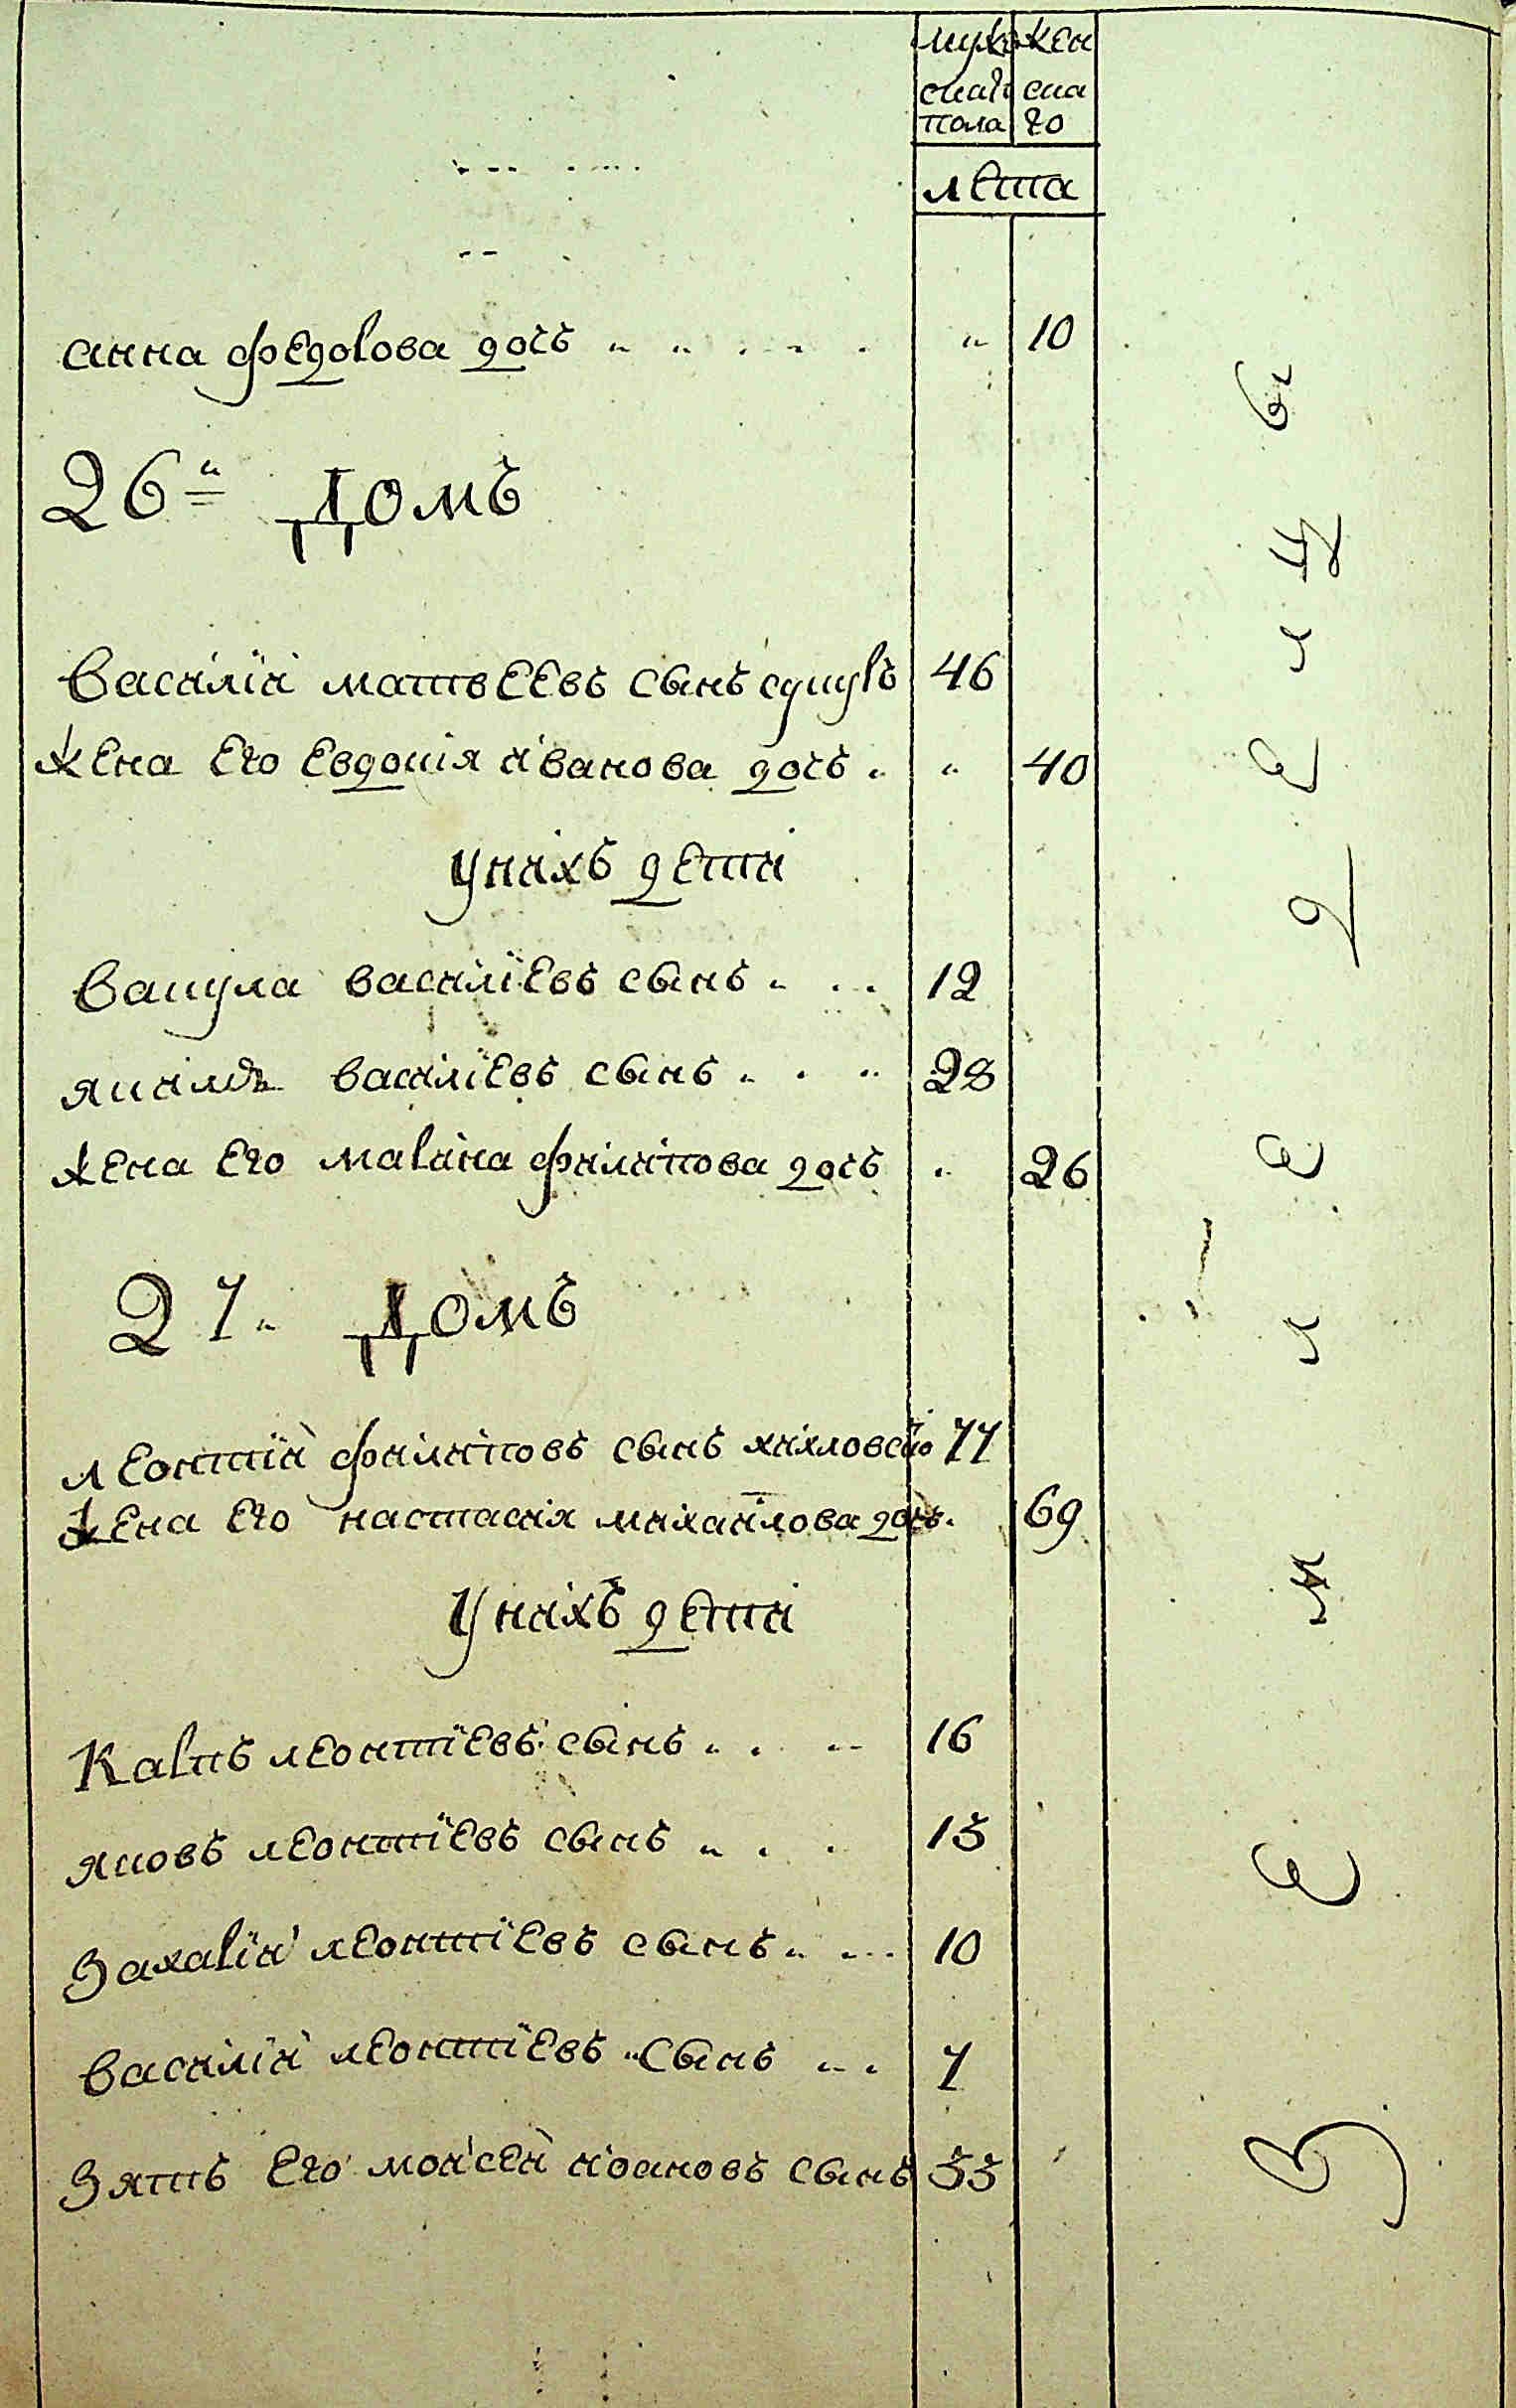 муже жен
скаго ска
пола го
лета
анна федорова дочь " " 10
26й Домъ
василій матвеевъ сынъ сцицуръ 46
жена его евдокія иванова дочь " 40
у нихъ дети
вакула василіевъ сынъ " 12
якимъ василіевъ сынъ " 28
жена его марина филипова дочь " 26
27" Домъ
леонтій филиповъ сынъ 77
жена его настасия михайлова дочь 69
у нихъ дети
Карпъ леонтіевъ сынъ " 16
яковъ леонтіевъ сынъ " 13
захарій леонтіевъ сынъ " 10
василій леонтіевъ сынъ 7
зять его моисей иоановъ сынъ 33